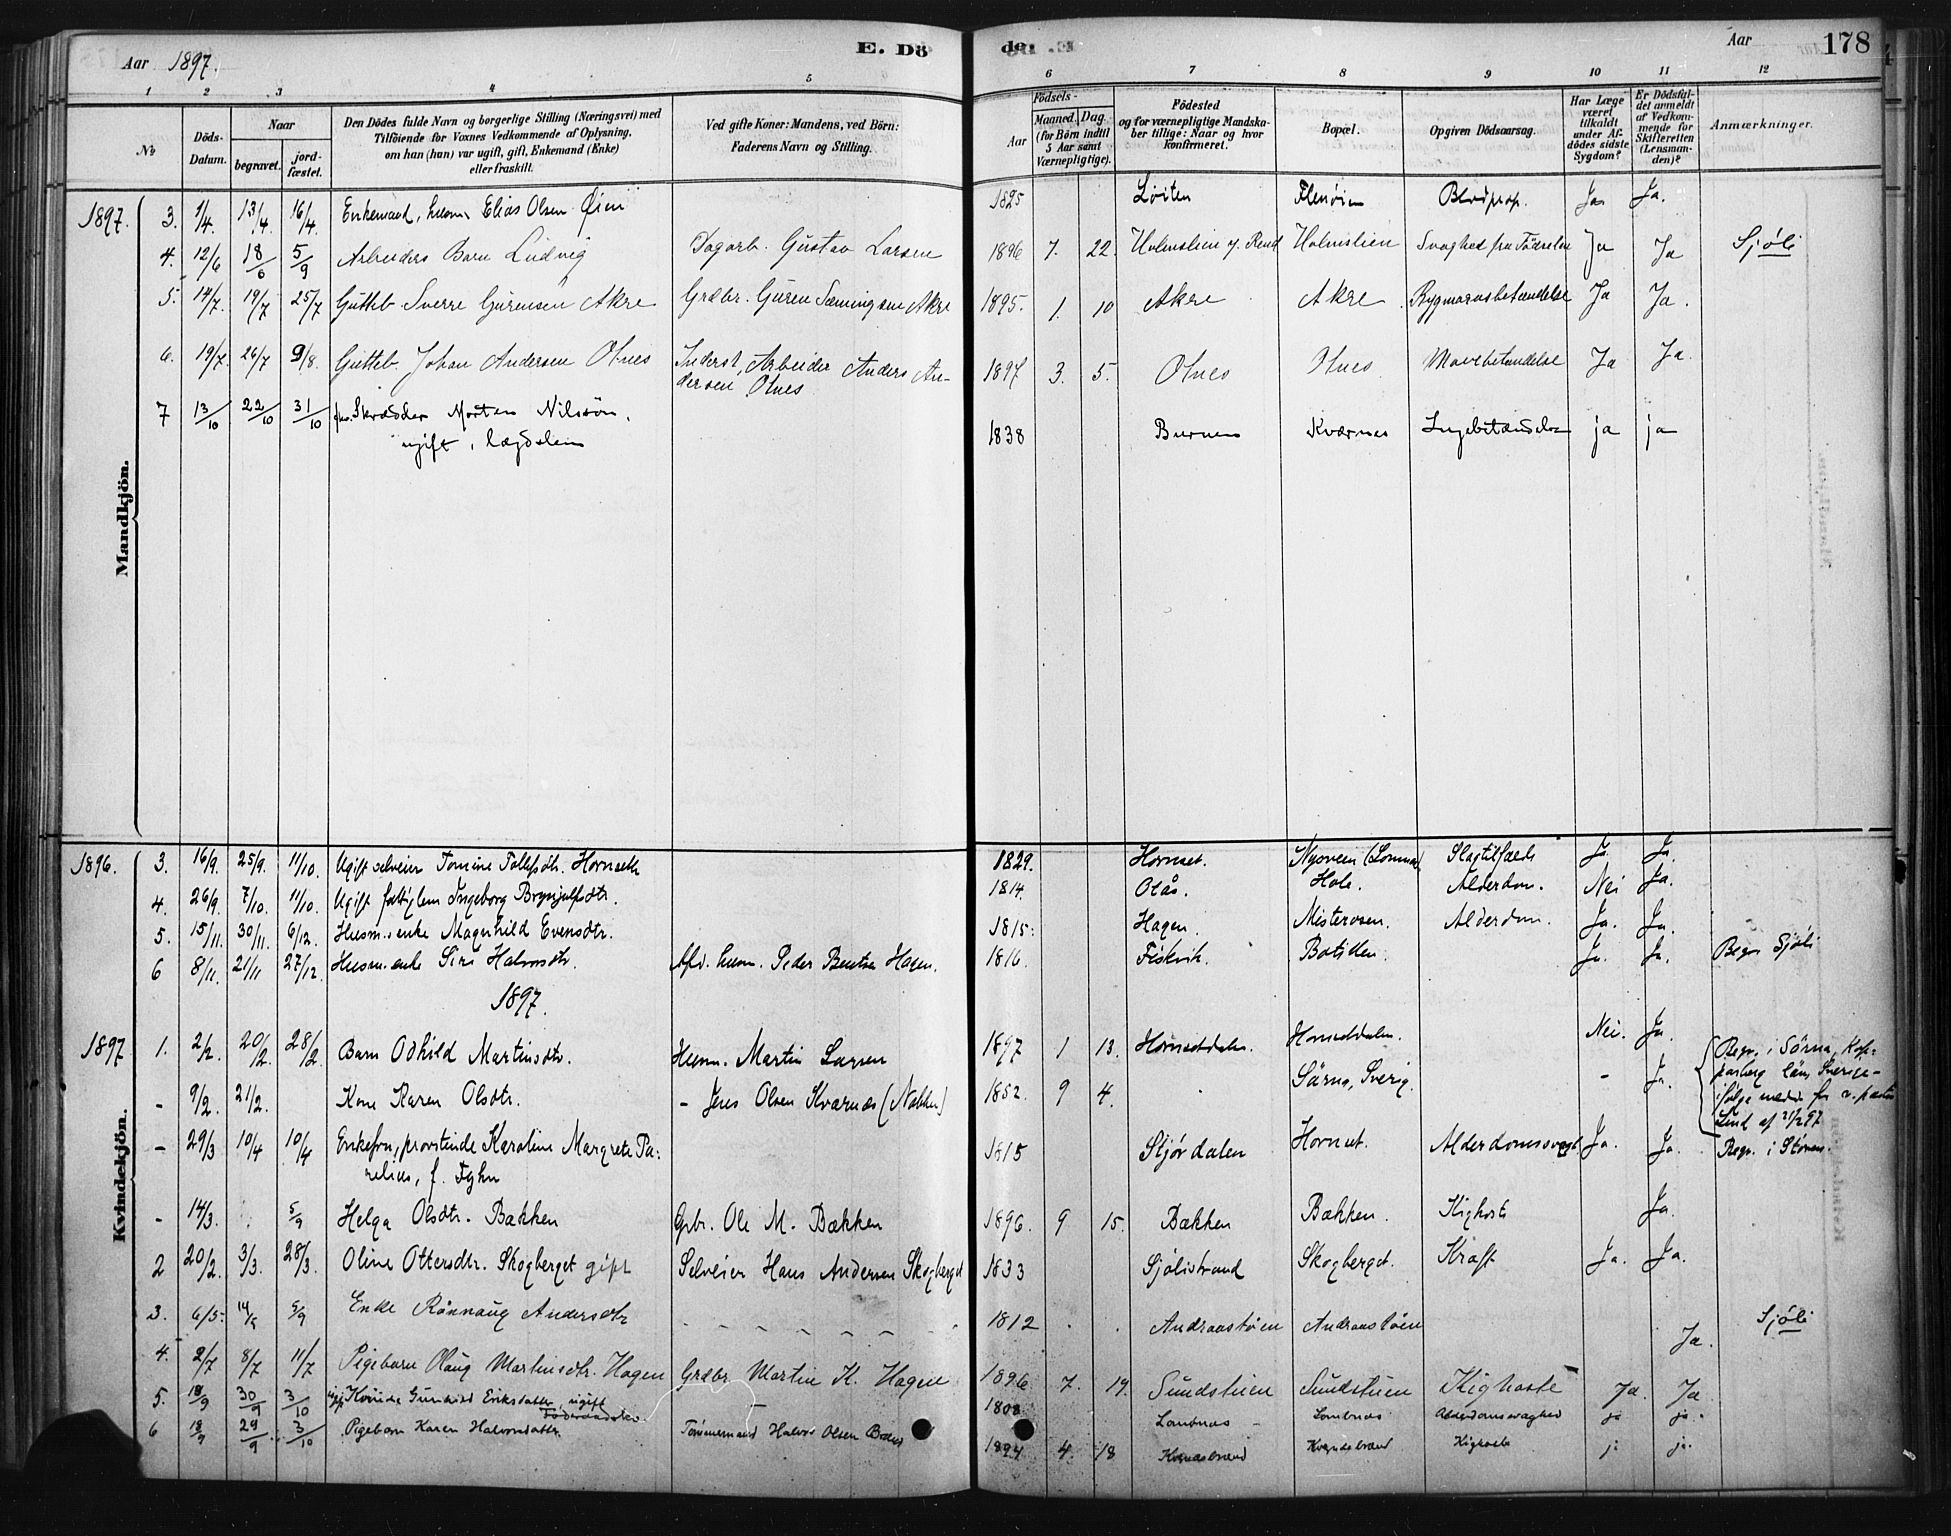 Aar 1897. E. Dö
de. Aar 178
1 2 3 4 5 6 7 8 9 10 11 12
No
Döds-Datum.
Naar
begravet.
jord-fæstet.
Den Dödes fulde Navn og borgerlige Stilling (Næringsvei) med
Tilföiende for Voxnes Vedkommende af Oplysning,
om han (hun) var ugift, gift, Enkemand (Enke)
eller fraskilt.
Ved gifte Koner: Mandens, ved Börn:
Faderens Navn og Stilling.
Födsels-
Aar
Maaned. Dag.
(for Börn indtil
5 Aar samt
Værnepligtige).
Födested
og for værnepligtige Mandska-
ber tillige: Naar og hvor
konfirmeret.
Bopæl.
Opgiven Dödsaarsag.
Har Læge
været
tilkaldt
under Af-
dödes sidste
Sygdom?
Er Dödsfal-
det anmeldt
af Vedkom-
mende for
Skifteretten
(Lensman-
den)?
Anmærkninger.
Mandkjön.
1897. 3. 1/4. 13/4. 16/4. Enkemand, husm. Elias Olsen Øien 1825 Løiten Blodprop. Ja Ja.
4. 12/6 18/6 5/9 Arbeiders Barn Ludvig Dagarb. Gustav Larsen 1896 7. 22. Holmstien Svaghed fra Fødselen Ja Ja Sjøli
5. 14/7. 19/7 25/7 Gutteb. Sverre Gurensen Akre Grdbr. Guren Sæmingsen Akre 1895. 1. 10 Akre Akre Rygmarvsbetændelse Ja Ja.
6. 19/7. 26/7 9/8. Gutteb. Johan Andersen Otnes Inderst, Arbeider Anders An-
dersen Otnes 1897 3. 5. Otnes Otnes Mavebetændelse Ja Ja.
7 13/10 22/10 31/10 Skrædder Morten Nilssøn,
ugift, lægdslem 1838 Kværnes ja ja
Kvindekjön.
1896. 3. 16/9. 25/9. 11/10. Ugift selveier Tomine Hornseth 1829. Hornset. Slagtilfælde Ja. Ja.
4. 26/9. 7/10. 11/10. Ugift fattiglem Ingeborg Brynjulfsdtr. 1814. Otås. Hole. Alderdom. Nei Ja.
5. 15/11. 30/11. 6/12. Husm.enke Magnhild Evensdtr. 1815. Hagen. Misterosen. Alderdom. Ja. Ja.
6 8/11. 21/11 27/12. Husm.enke Siri Halvorsdtr. Afd. husm. Peder Bentsen Hagen. 1816. Fiskvik. Ja. Ja. Begr. Sjøli
1897.
1897 1. 2/2. 20/2. 28/2 Barn Odhild Martinsdtr. Husm. Martin Larsen 1897 1 13. Hornsetdalen. Hornsetdalen. Nei. Ja.
- 9/2. 21/2. Kone Karen Olsdtr. - Jens Olsen Kværnæs (Nakken) 1852. 9 4. Särna, Sverig. - Ja. Begr. i Särna, Kop-
parberg län, Sverige-
ifølge meddl. fr. v. pastor
Lind af 21/2 97
- 29/3 10/4 10/4 Enkefru, provstinde Karoline Margrete Pa-
relius, f. 1815 Stjørdalen Hornset. Alderdomssvagh. Ja. Ja. Begr. i Støren.
- 14/3. 5/9 Helga Olsdtr. Bakken Grbr. Ole M. Bækken 1896. 9 15. Bækken Bækken. Kighoste Ja.
2 20/2. 3/3. 28/3. Oline Ottersdtr. Skogberget gift Selveier Hans Andersen Skogberget 1833 Sjølistrand Skogberget. Kræft Ja. Ja.
3. 6/5. 5/9 Enke Rønnaug Andersdtr 1812 Andraastøen Andraastøen Ja. Sjøli
4. 2/7 8/7 11/7 Pigebarn Olaug Martinsdtr. Hagen Grdbr Martin K. Hagen 1896 7. 19. Sundstuen Sundstuen Kighoste Ja. Ja
5. 18/9 30/9 3/10 Kvinde Gunhild Eriksdatter, ugift 1808 Lombnæs Lombnæs Alderdomssvaghed ja ja.
6 18/9 29/9 3/10 Pigebarn Karen Halvorsdatter Tømmermand Halvor Olsen 1894 4. 18 Kighoste ja.